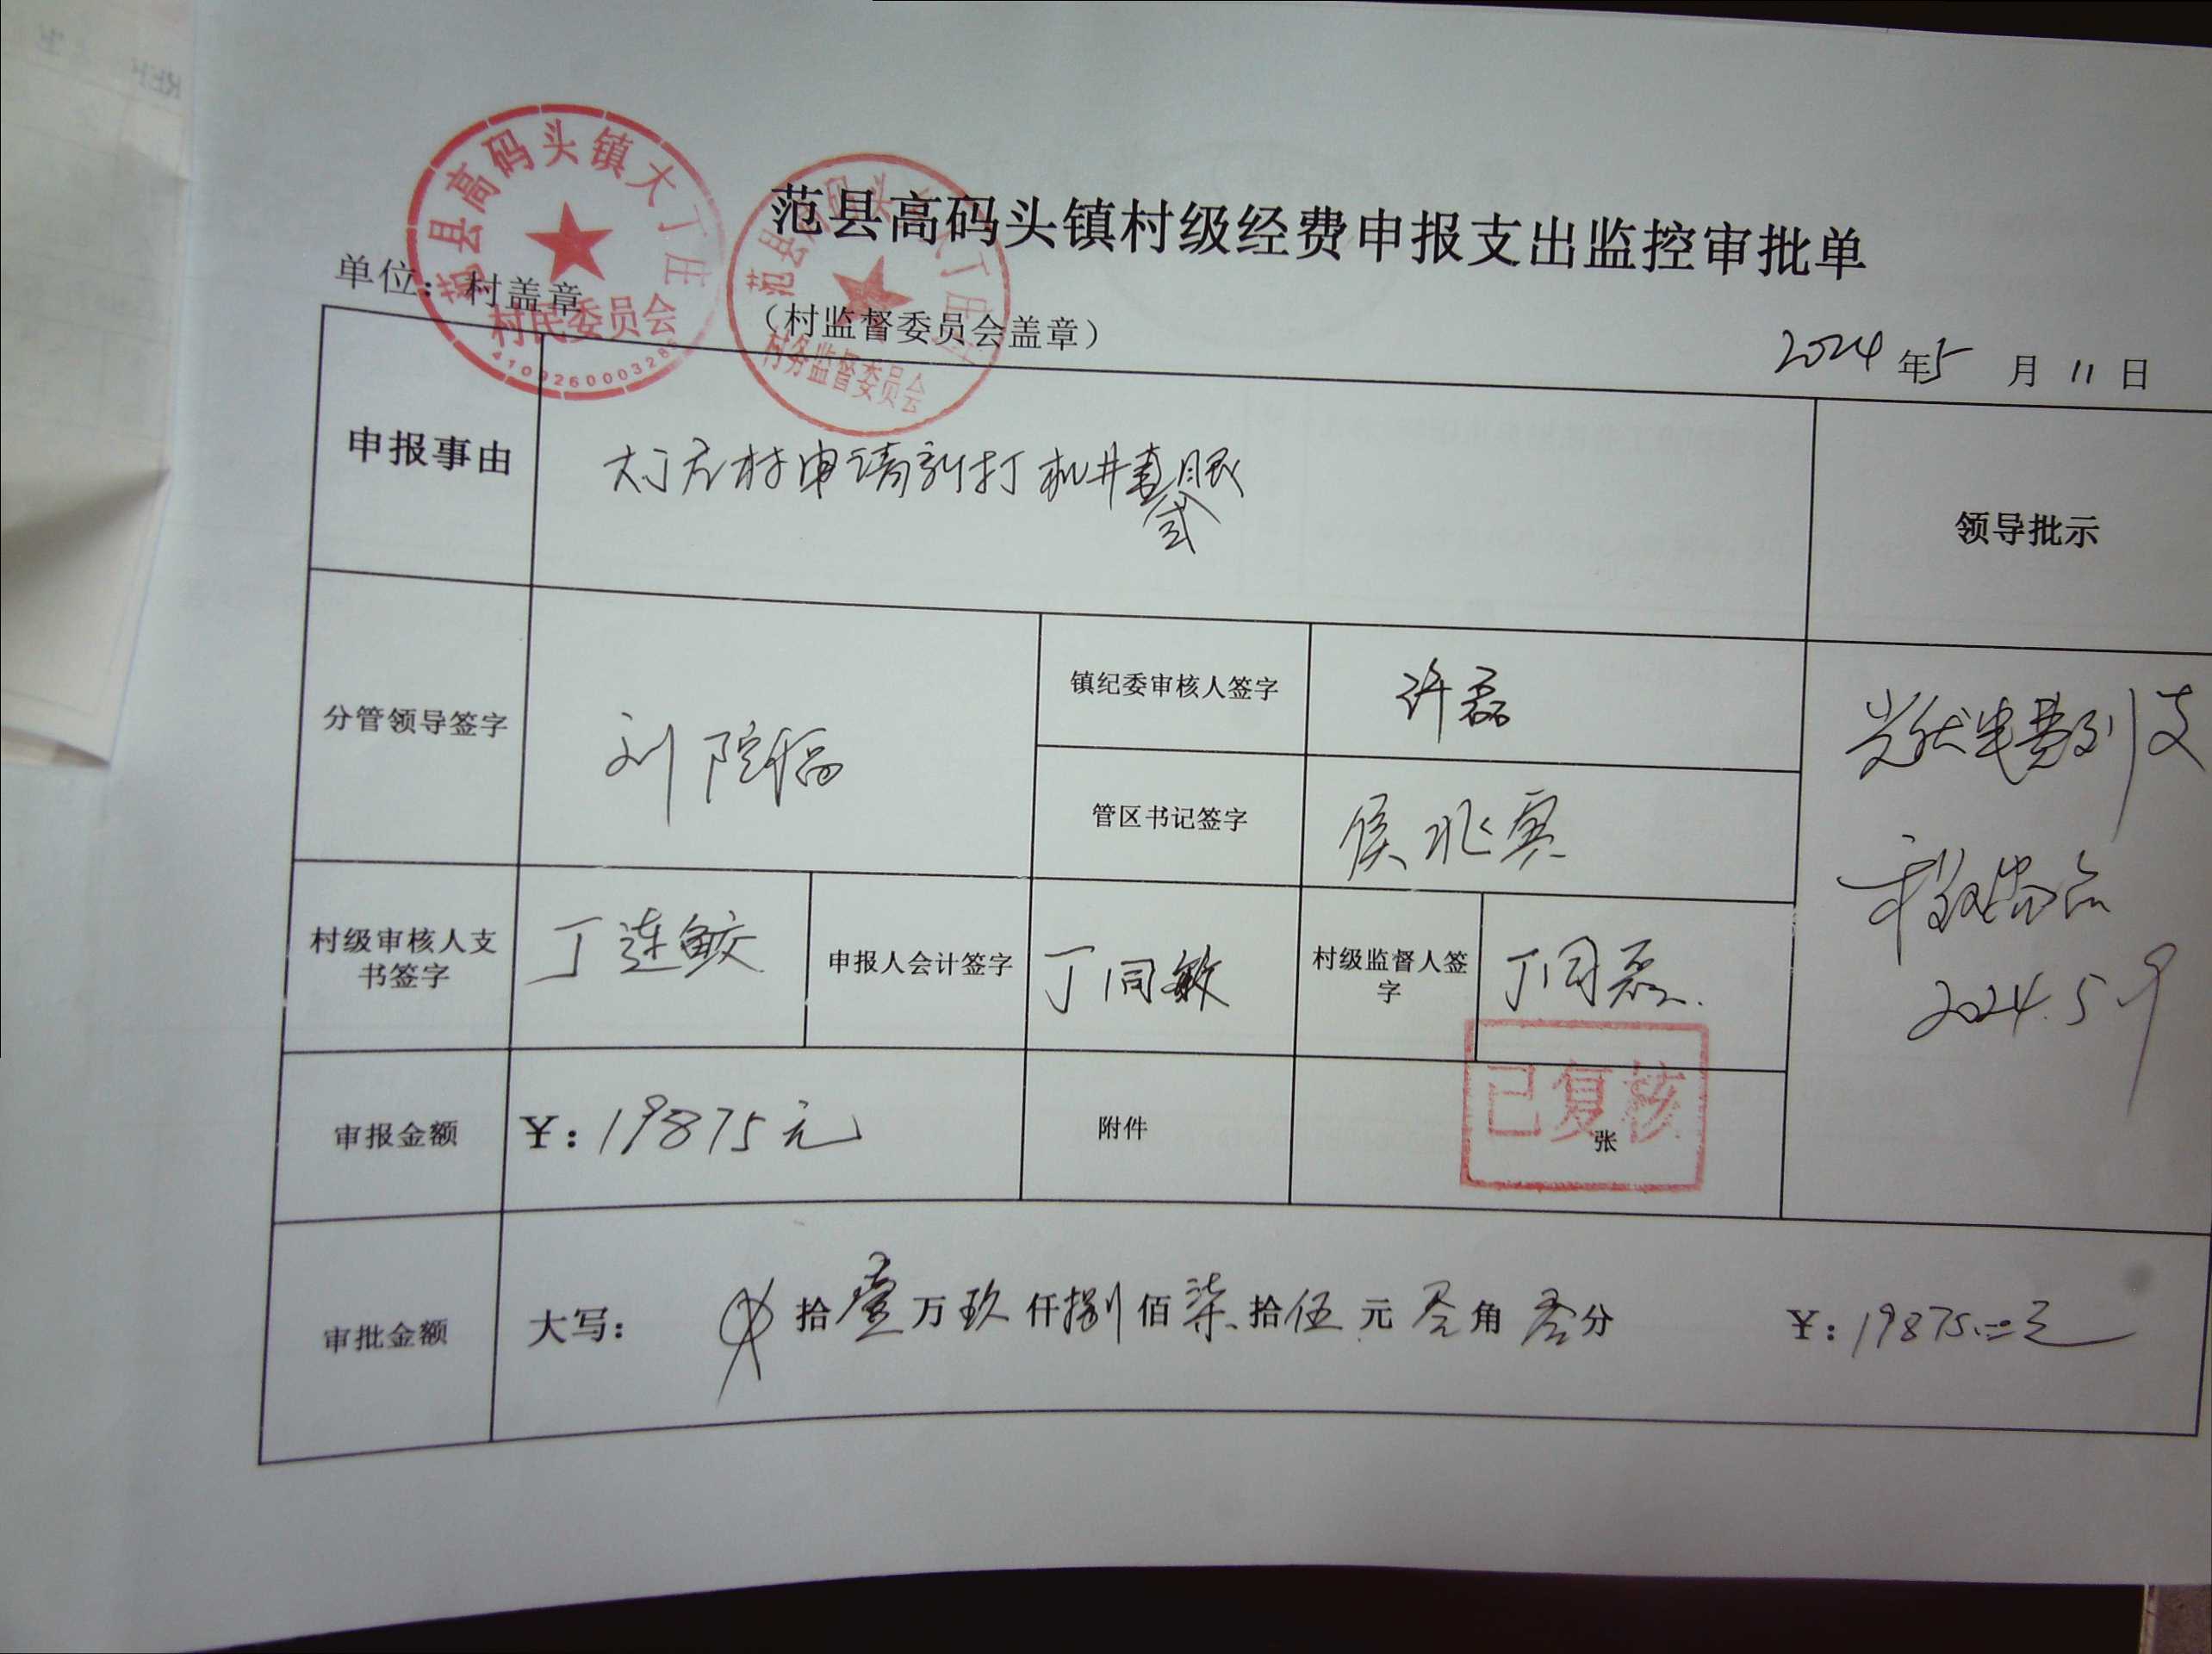 范县高码头镇村级经费申报支出监控审批单
范县高码头镇大丁庄
村民委员会
范县高码头镇大丁庄
村务监督委员会
单位：村盖章
（村监督委员会盖章）
2024年5月11日
申报事由
大丁庄村申请新打机井壹眼
贰
领导批示
分管领导签字
刘
镇纪委审核人签字
许磊
光伏电费列支
管区书记签字
侯兆宾
2024.5.9
村级审核人支
书签字
丁连鲛
申报人会计签字
丁同敏
村级监督人签
字
丁同磊
审报金额
￥：19875元
附件
张
已复核
审批金额
大写：
拾壹万玖仟捌佰柒拾伍元零角零分
￥：19875.00元